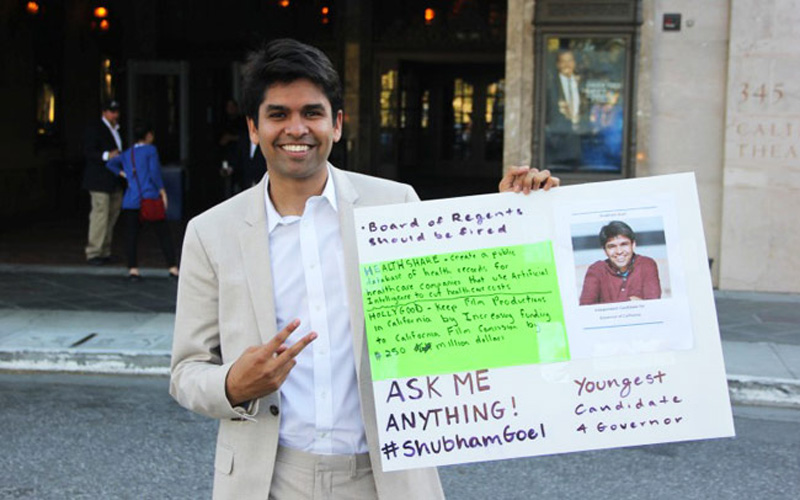 • Board of Regents
should be fired
HEALTHSHARE - Create a public
database of health records for
healthcare companies that use Artificial
Intelligence to cut healthcare costs
HOLLYGOOD - Keep Film Productions
in California by Increasing funding
to California Film Comission by
$250 million dollars
ASK ME
ANYTHING!
#ShubhamGoel
Youngest
Candidate
4 Governor
Independent Candidate for
Governor of California
345
CALI
THEA